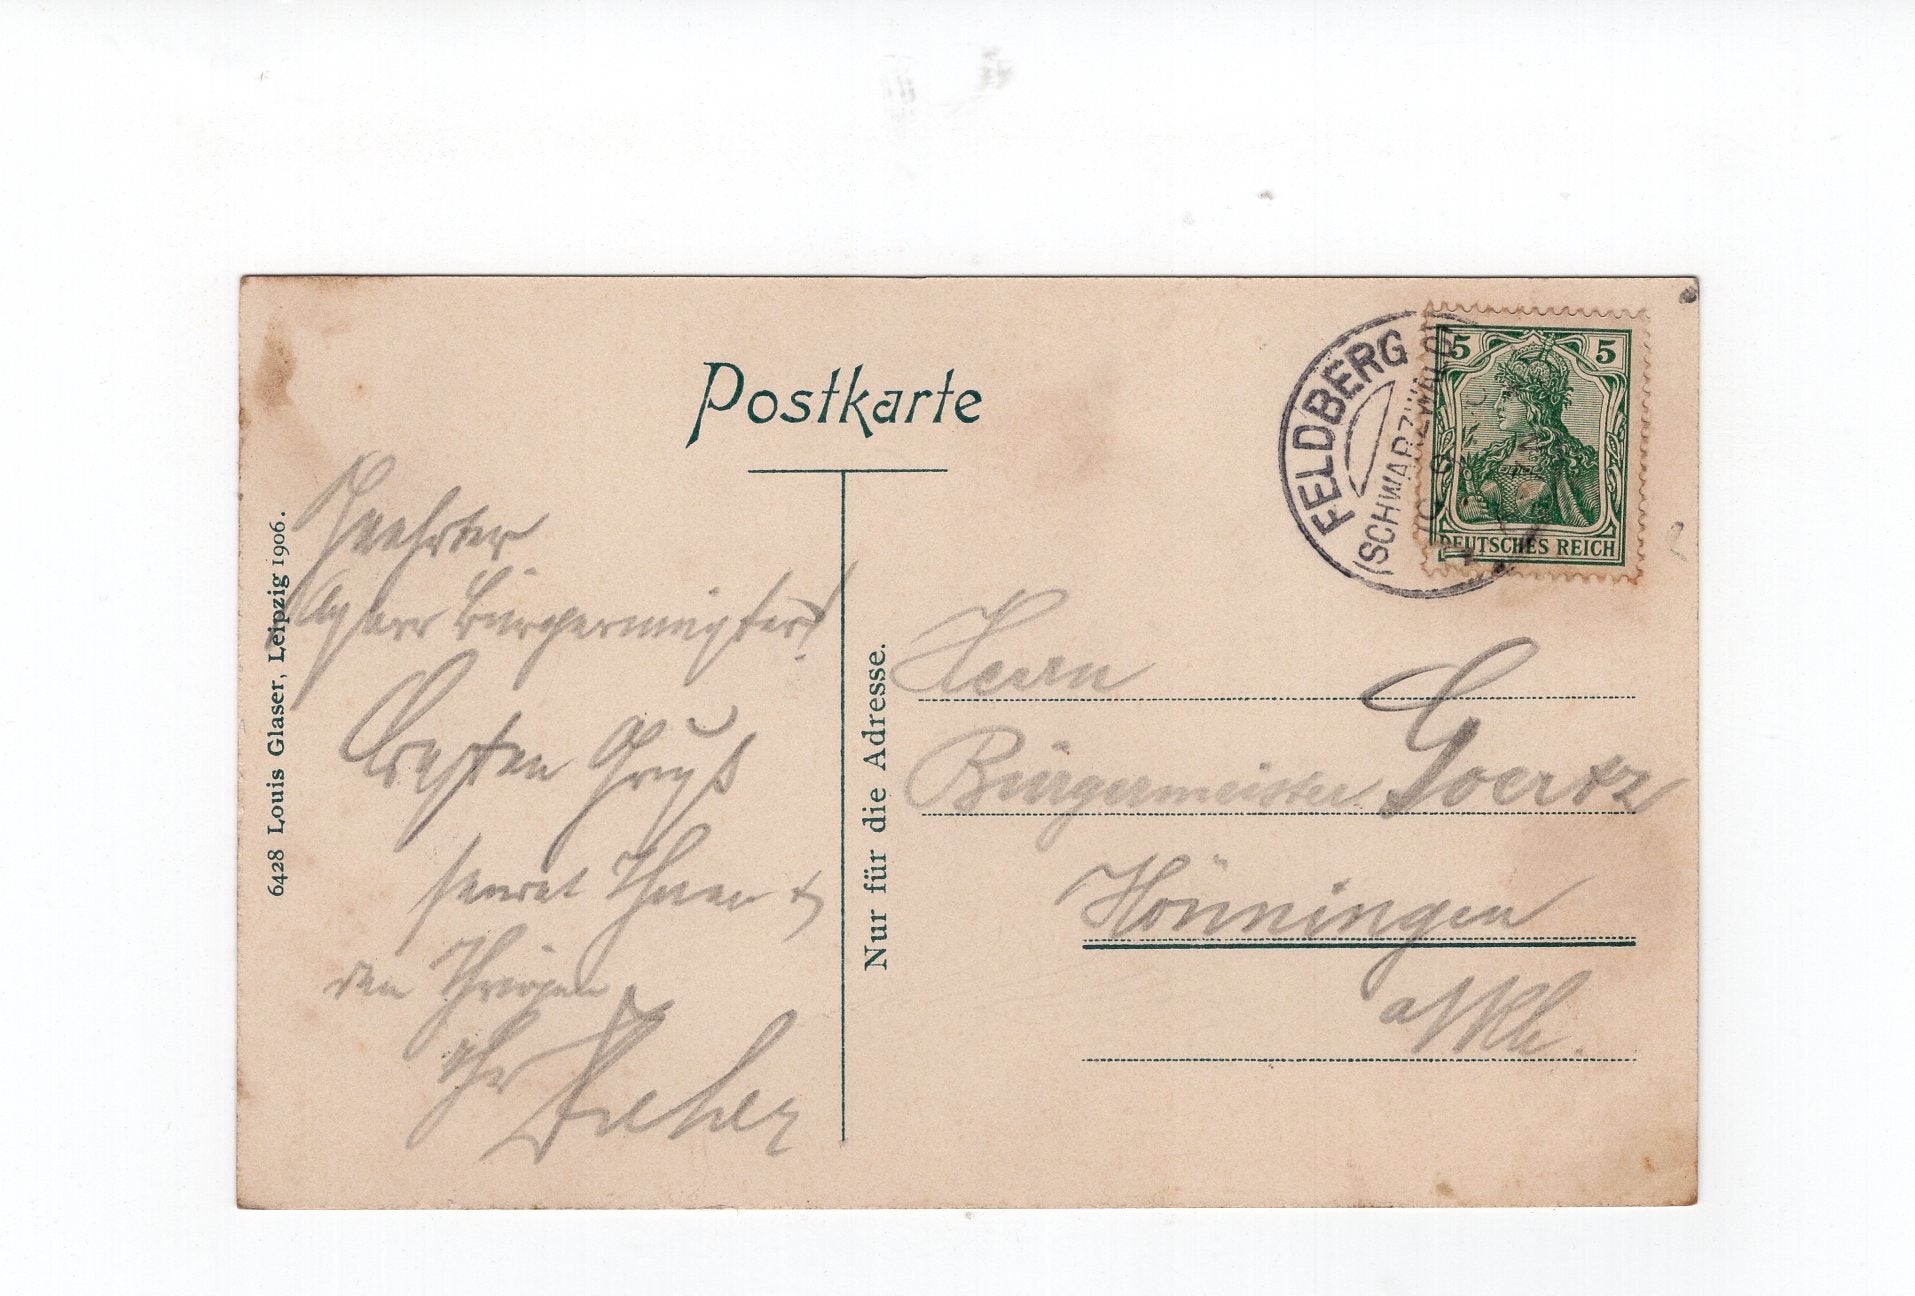 Postkarte
6428 Louis Glaser, Leipzig 1906.
Nur für die Adresse.
FELDBERG
(SCHWARZWALD)
5 5
DEUTSCHES REICH
Geehrter
Herr Bürgermeister!
Besten Gruß
sendet Ihnen &
den Ihrigen
Ihr
Herrn
Bürgermeister Goertz
Hönningen
a/Rh.